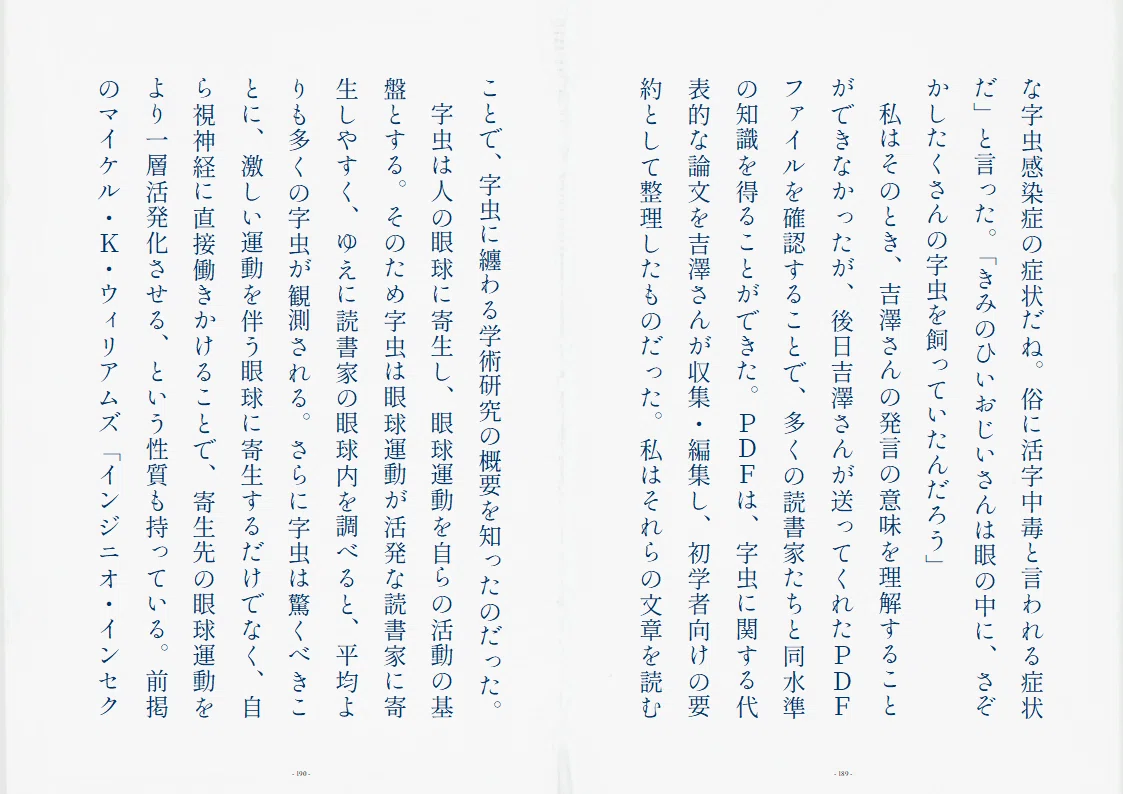 な字虫感染症の症状だね。俗に活字中毒と言われる症状
だ」と言った。「きみのひいおじいさんは眼の中に、さぞ
かしたくさんの字虫を飼っていたんだろう」
私はそのとき、吉澤さんの発言の意味を理解すること
ができなかったが、後日吉澤さんが送ってくれたＰＤＦ
ファイルを確認することで、多くの読書家たちと同水準
の知識を得ることができた。ＰＤＦは、字虫に関する代
表的な論文を吉澤さんが収集・編集し、初学者向けの要
約として整理したものだった。私はそれらの文章を読む
- 189 -
ことで、字虫に纏わる学術研究の概要を知ったのだった。
字虫は人の眼球に寄生し、眼球運動を自らの活動の基
盤とする。そのため字虫は眼球運動が活発な読書家に寄
生しやすく、ゆえに読書家の眼球内を調べると、平均よ
りも多くの字虫が観測される。さらに字虫は驚くべきこ
とに、激しい運動を伴う眼球に寄生するだけでなく、自
ら視神経に直接働きかけることで、寄生先の眼球運動を
より一層活発化させる、という性質も持っている。前掲
のマイケル・Ｋ・ウィリアムズ「インジニオ・インセク
- 190 -